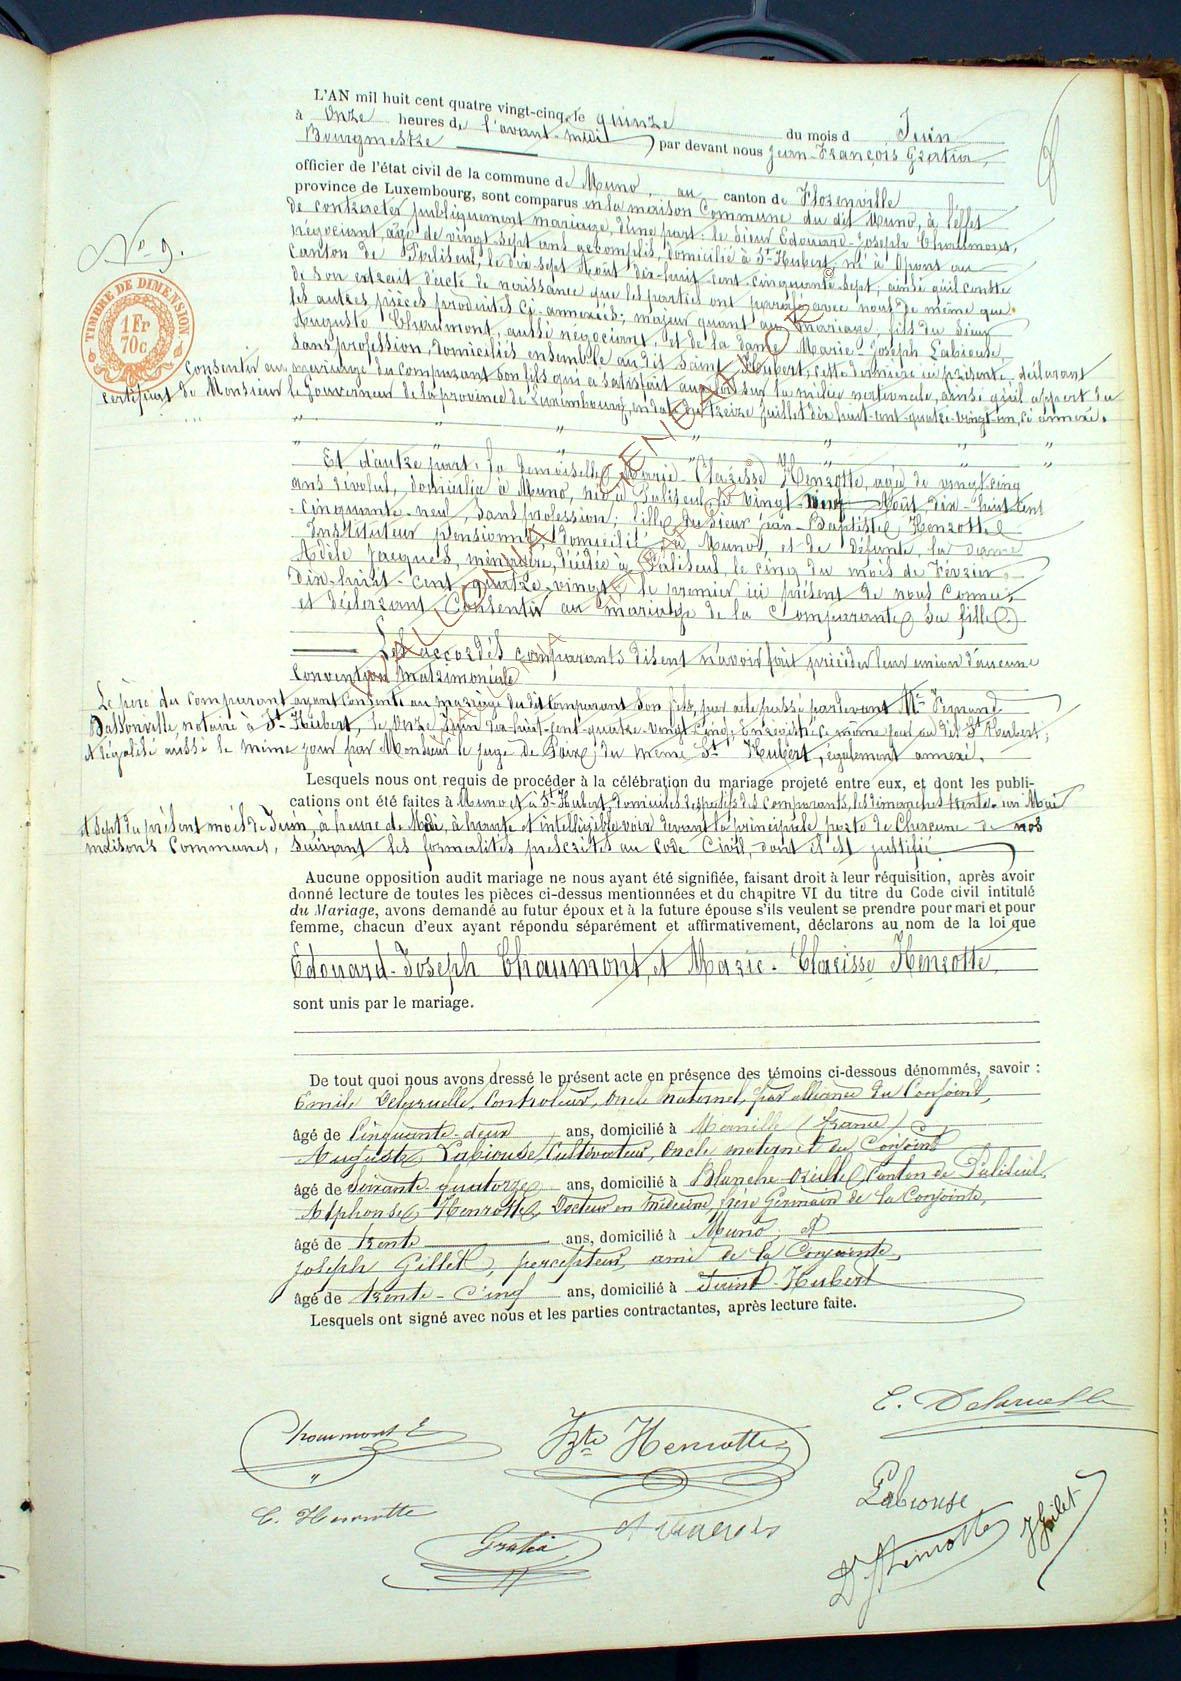 L'AN mil huit cent quatre vingt-cinq, le quinze du mois d Juin
à Onze heures de l'avant-midi par devant nous Jean-François Gratia,
Bourgmestre
officier de l'état civil de la commune de Muno, au canton de Florenville
province de Luxembourg, sont comparus en la maison Commune du dit Muno, à l'effet
de contracter publiquement mariage, d'une part: le Sieur Edouard-Joseph Chaumont,
négociant, âgé de vingt-sept ans accomplis, domicilié à St-Hubert, né à Opont au
Canton de Paliseul, le dix-sept Août dix-huit-cent-cinquante-sept, ainsi qu'il conste
de son extrait d'acte de naissance que les parties ont paraphé avec nous de même que
les autres pièces produites ci-annexées; majeur quant au mariage, fils du Sieur
Auguste Chaumont, aussi négociant, et de la dame Marie-Joseph Labiouse
Sans profession, domiciliés ensemble au dit Saint Hubert, cette dernière ici présente déclarant
N° 9.
TIMBRE DE DIMENSION
1 Fr
70c
Consentir au mariage du Comparant son fils qui a satisfait aux lois sur la milice nationale, ainsi qu'il appert du
certificat de Monsieur le Gouverneur de la province de Luxembourg, en date du treize Juillet dix-huit-cent-quatre-vingt-un, ci annexé.
Et d'autre part: la Demoiselle Marie-Clarisse Henrotte, âgée de vingt cinq
ans révolus, domiciliée à Muno, née à Paliseul, le vingt Août, dix-huit cent
cinquante-neuf, Sans profession; fille du Sieur Jean-Baptiste Henrotte
Instituteur pensionné, domicilié à Muno, et de défunte, la dame
Adèle Jacques, ménagère, décédée à Paliseul, le cinq du mois de Février
Dix-huit-cent quatre-vingt, le premier ici présent de nous Connu,
et déclarant Consentir au mariage de la Comparante, sa fille.
Les accordés comparants disent n'avoir fait précéder leur union d'aucune
Convention Matrimoniale
Le père du comparant ayant consenti au mariage du dit Comparant Son fils, par acte passé par devant Me Fernand
Dassonville, notaire à St-Hubert, le onze Juin dix-huit-cent-quatre-vingt-cinq, Enregistré le même jour au dit St Hubert;
et légalisé aussi le même jour par Monsieur le juge de Paix du même St Hubert, également annexé.
Lesquels nous ont requis de procéder à la célébration du mariage projeté entre eux, et dont les publi-
cations ont été faites à Muno et à St-Hubert, domiciles respectifs des Comparants, les dimanches trente-un Mai
et Sept du présent mois de Juin, à heure de Midi, à haute et intelligible voix devant la principale porte de Chacune de nos
maisons Communes, suivant les formalités prescrites au Code Civil, dont il est justifié.
Aucune opposition audit mariage ne nous ayant été signifiée, faisant droit à leur réquisition, après avoir
donné lecture de toutes les pièces ci-dessus mentionnées et du chapitre VI du titre du Code civil intitulé
du Mariage, avons demandé au futur époux et à la future épouse s'ils veulent se prendre pour mari et pour
femme, chacun d'eux ayant répondu séparément et affirmativement, déclarons au nom de la loi que
Edouard-Joseph Chaumont, et Marie-Clarisse Henrotte
sont unis par le mariage.
De tout quoi nous avons dressé le présent acte en présence des témoins ci-dessous dénommés, savoir :
Emile Delaruelle, Controleur, oncle maternel, par alliance du Conjoint,
âgé de Cinquante-deux ans, domicilié à (france)
Auguste Labiouse, Cultivateur, oncle maternel du Conjoint
âgé de Soixante-quatorze ans, domicilié à Blanche-Oreille, Canton de Paliseul,
Alphonse Henrotte, Docteur en médecine, frère Germain de la Conjointe,
âgé de trente ans, domicilié à Muno, et
Joseph Gillet, percepteur, ami de la Conjointe,
âgé de trente-cinq ans, domicilié à Saint-Hubert
Lesquels ont signé avec nous et les parties contractantes, après lecture faite.
E. Delaruelle
Chaumont E
Jbte Henrotte
Labiouse
C. Henrotte
Gratia
Dr A Henrotte
J Gilet